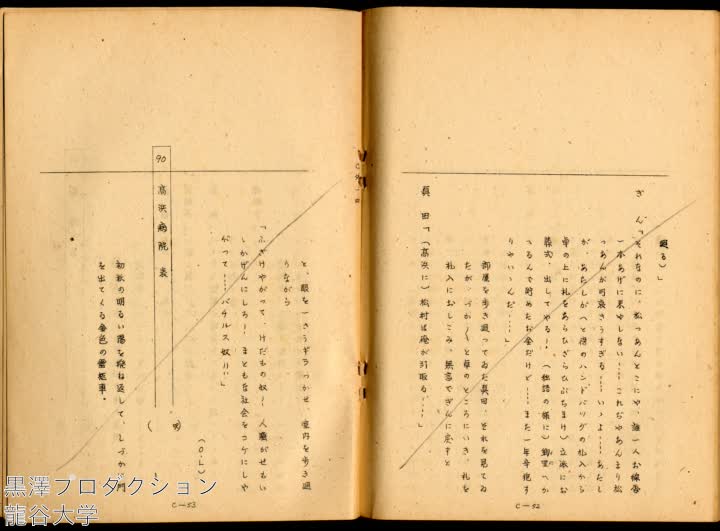 廻る)」
ぎん「それなのに、松つあんとこにや、誰一人お線香
一本あげに来やしない……これぢやあんまり松
つあんが可哀さうすぎる……いゝよ……あたし
が、あたしが(と傍のハンドバッグの札入から
卓の上に札をあらひざらひぶちまけ)立派にお
葬式、出してやる!、(独語の様に)へか
つるんで貯めたお金だけど……また一年辛抱す
りやいゝんだ……」
部屋を歩き廻つてゐた眞田、それを見てゐ
たが、づか〱と卓のところにいき、札を
札入におしこみ、無言でぎんに戻すと
眞田「(高浜に)松村は俺が引取る……」
C—52
と、眼を一さうギラつかせ 室内を歩き廻
りながら
「ふざけやがつて、けだもの奴!、人騒がせもい
いかげんにしろ!、まともな社会をコケにしや
がつて……バチルス奴!!」
(O・L)
90 高浜病院 表
初秋の明るい陽を撥ね返して、しづかに門
を出てくる金色の霊柩車。
C—53
黒澤プロダクション
龍谷大学